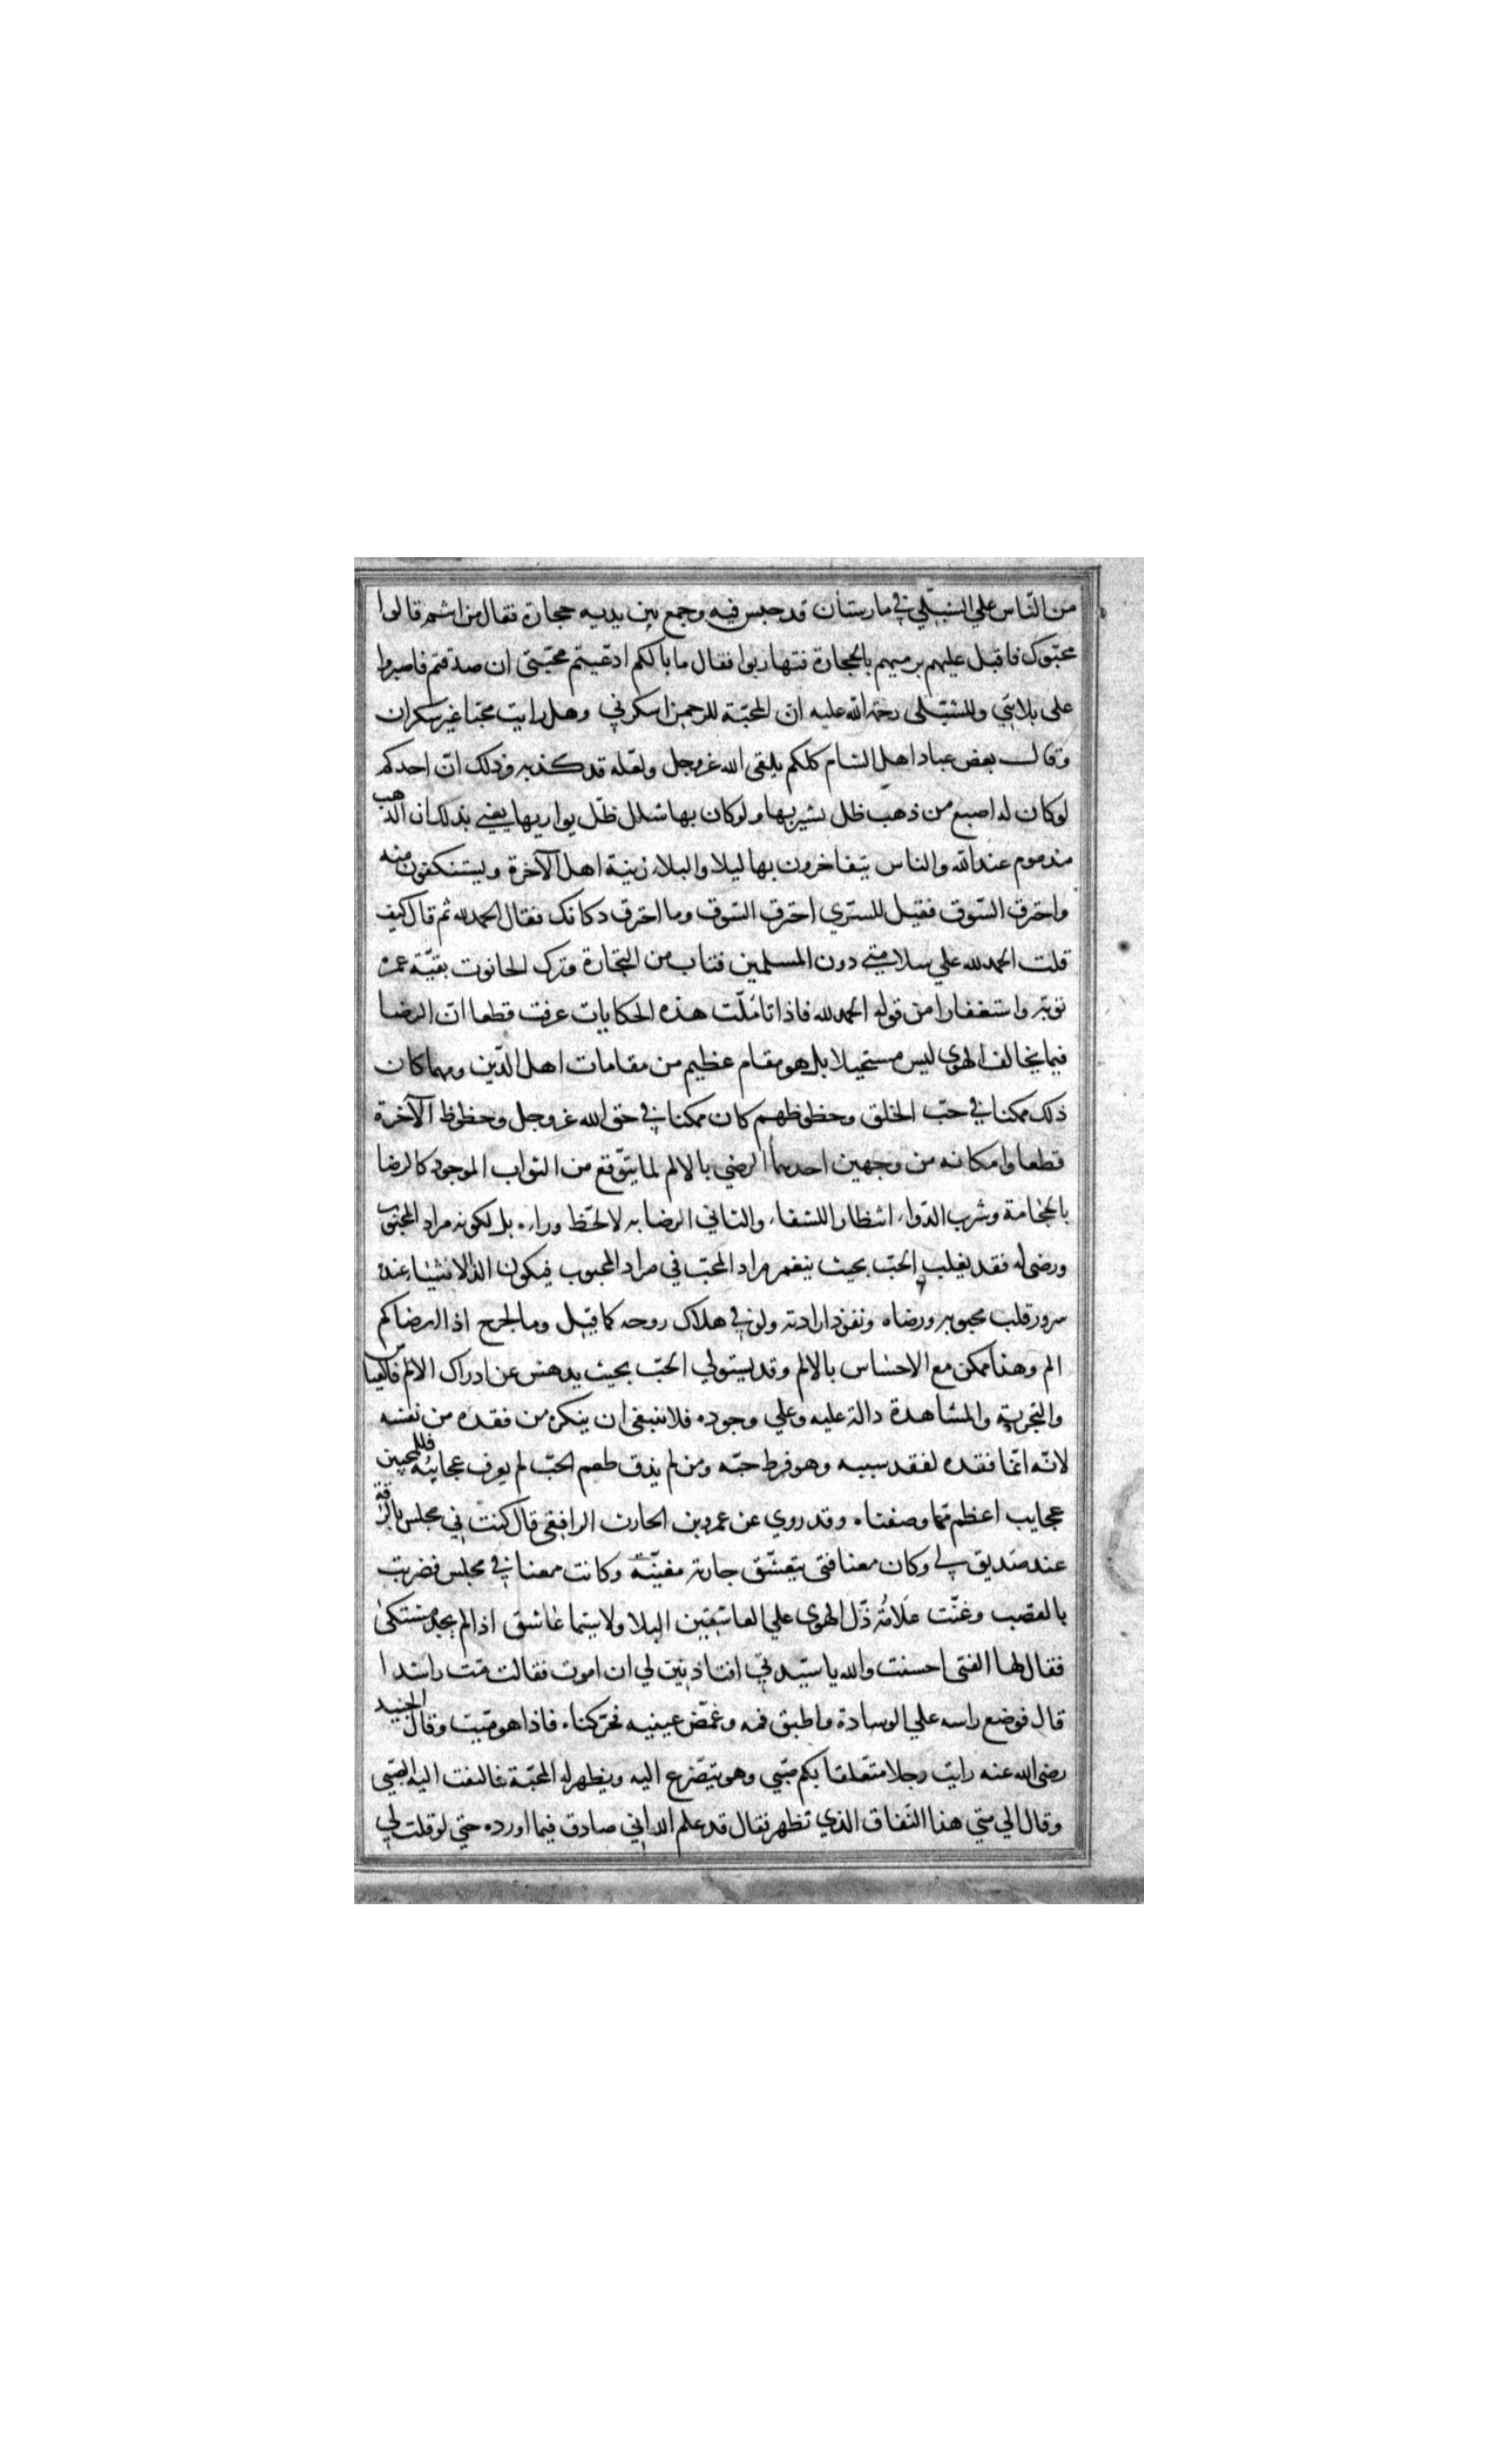 من النّاس علي الشبلي في مارستان قد حبس فيه وجمع بين يديه حجارة فقال من انتم قالوا
محبّوك فاقبل عليهم يرميهم بالحجارة فتهاربوا فقال ما بالكم ادّعيتم محبّتي ان صدقتم فاصبروا
على بلائي وللشبّلى رحمة الله عليه انّ المحبّة للرحمن اسكرني وهل رايت محبّا غير سكران
وقال بعض عباد اهل الشام كلكم يلقى الله عزوجل ولعّله قد كذبه وذلك انّ احدكم
لوكان له اصبع من ذهب ظل يشير بها ولوكان بها شلل ظلّ يواريها يعني بذلك ان الذهب
مذموم عند الله والناس يتفاخرون بها ليلا والبلاء زينة اهل الآخرة ويستنكفون منه
واحترق السّوق فقيل للسّري احترق السّوق وما احترق دكانك فقال الحمد لله ثم قال كيف
قلت الحمد لله علي سلامتي دون المسلمين فتاب من التجارة وترك الحانوت بقيّة عمره
توبة واستغفارا من قوله الحمد لله فاذا تامّلت هذه الحكايات عرفت قطعا انّ الرضا
فيما يخالف الهوى ليس مستحيلا بل هو مقام عظيم من مقامات اهل الدّين ومهما كان
ذلك ممكنا في حبّ الخلق وحظوظهم كان ممكنا في حق الله عزوجل وحظوظ الآخرة
قطعا وامكانه من وجهين احدهما الرضي بالالم لما يتوّقع من الثواب الموجود كالرضا
بالحجامة وشرب الدّواء انتظارا للشفاء والثاني الرضا به لا لحظّ وراءه بل لكونه مراد المحبوب
ورضى له فقد يغلب الحبّ بحيث ينغمر مراد المحبّ في مراد المحبوب فيكون الذّ الاشياء عنده
سرور قلب محبوبه ورضاه ونفوذ ارادته ولو في هلاك روحه كما قيل وما لجرح اذا ارضاكم
الم وهذا ممكن مع الاحساس بالالم وقد يستولي الحبّ بحيث يدهش عن ادراك الالم فالقياس
والتجربة والمشاهدة دالة عليه وعلي وجوده فلا ينبغي ان ينكره من فقده من نفسه
لانّه انّما فقده لفقد سببه وهو فرط حبّه ومن لم يذق طعم الحبّ لم يعرف عجايبه فللمحبين
عجايب اعظم ممّا وصفناه وقد روي عن عمرو بن الحارث الرافقي قال كنت في مجلس بالرّقة
عند صديق لي وكان معنا فتى يتعشّق جارية مغنيّة وكانت معنا في مجلس فضربت
بالقصب وغنّت علامة ذّل الهوى علي العاشقين البلا ولا سيّما عاشق اذا لم يجد مشتكى
فقال لها الفتى احسنت والله يا سيّدتي افتاذنين لي ان اموت فقالت مت راشدا
قال فوضع راسه علي الوسادة واطبق فمه وغمّض عينيه فحرّكناه فاذا هو ميّت وقال الجنيد
رضى الله عنه رايت رجلا متعلقا بكم صبّي وهو يتضّرع اليه ويظهر له المحبّة فالتفت اليه الصّبي
وقال الي متي هذا النّفاق الذي تظهر فقال قد علم الله اني صادق فيما اورده حتي لو قلت لي